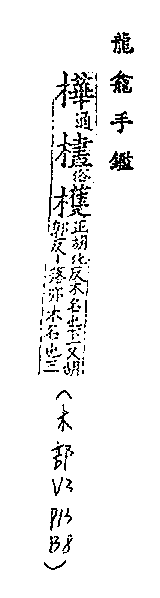 龍龕手鑑
樺通俗檴正胡化反木名也下一又胡
郭反丨落亦木名也三
(木部V3P13B8)